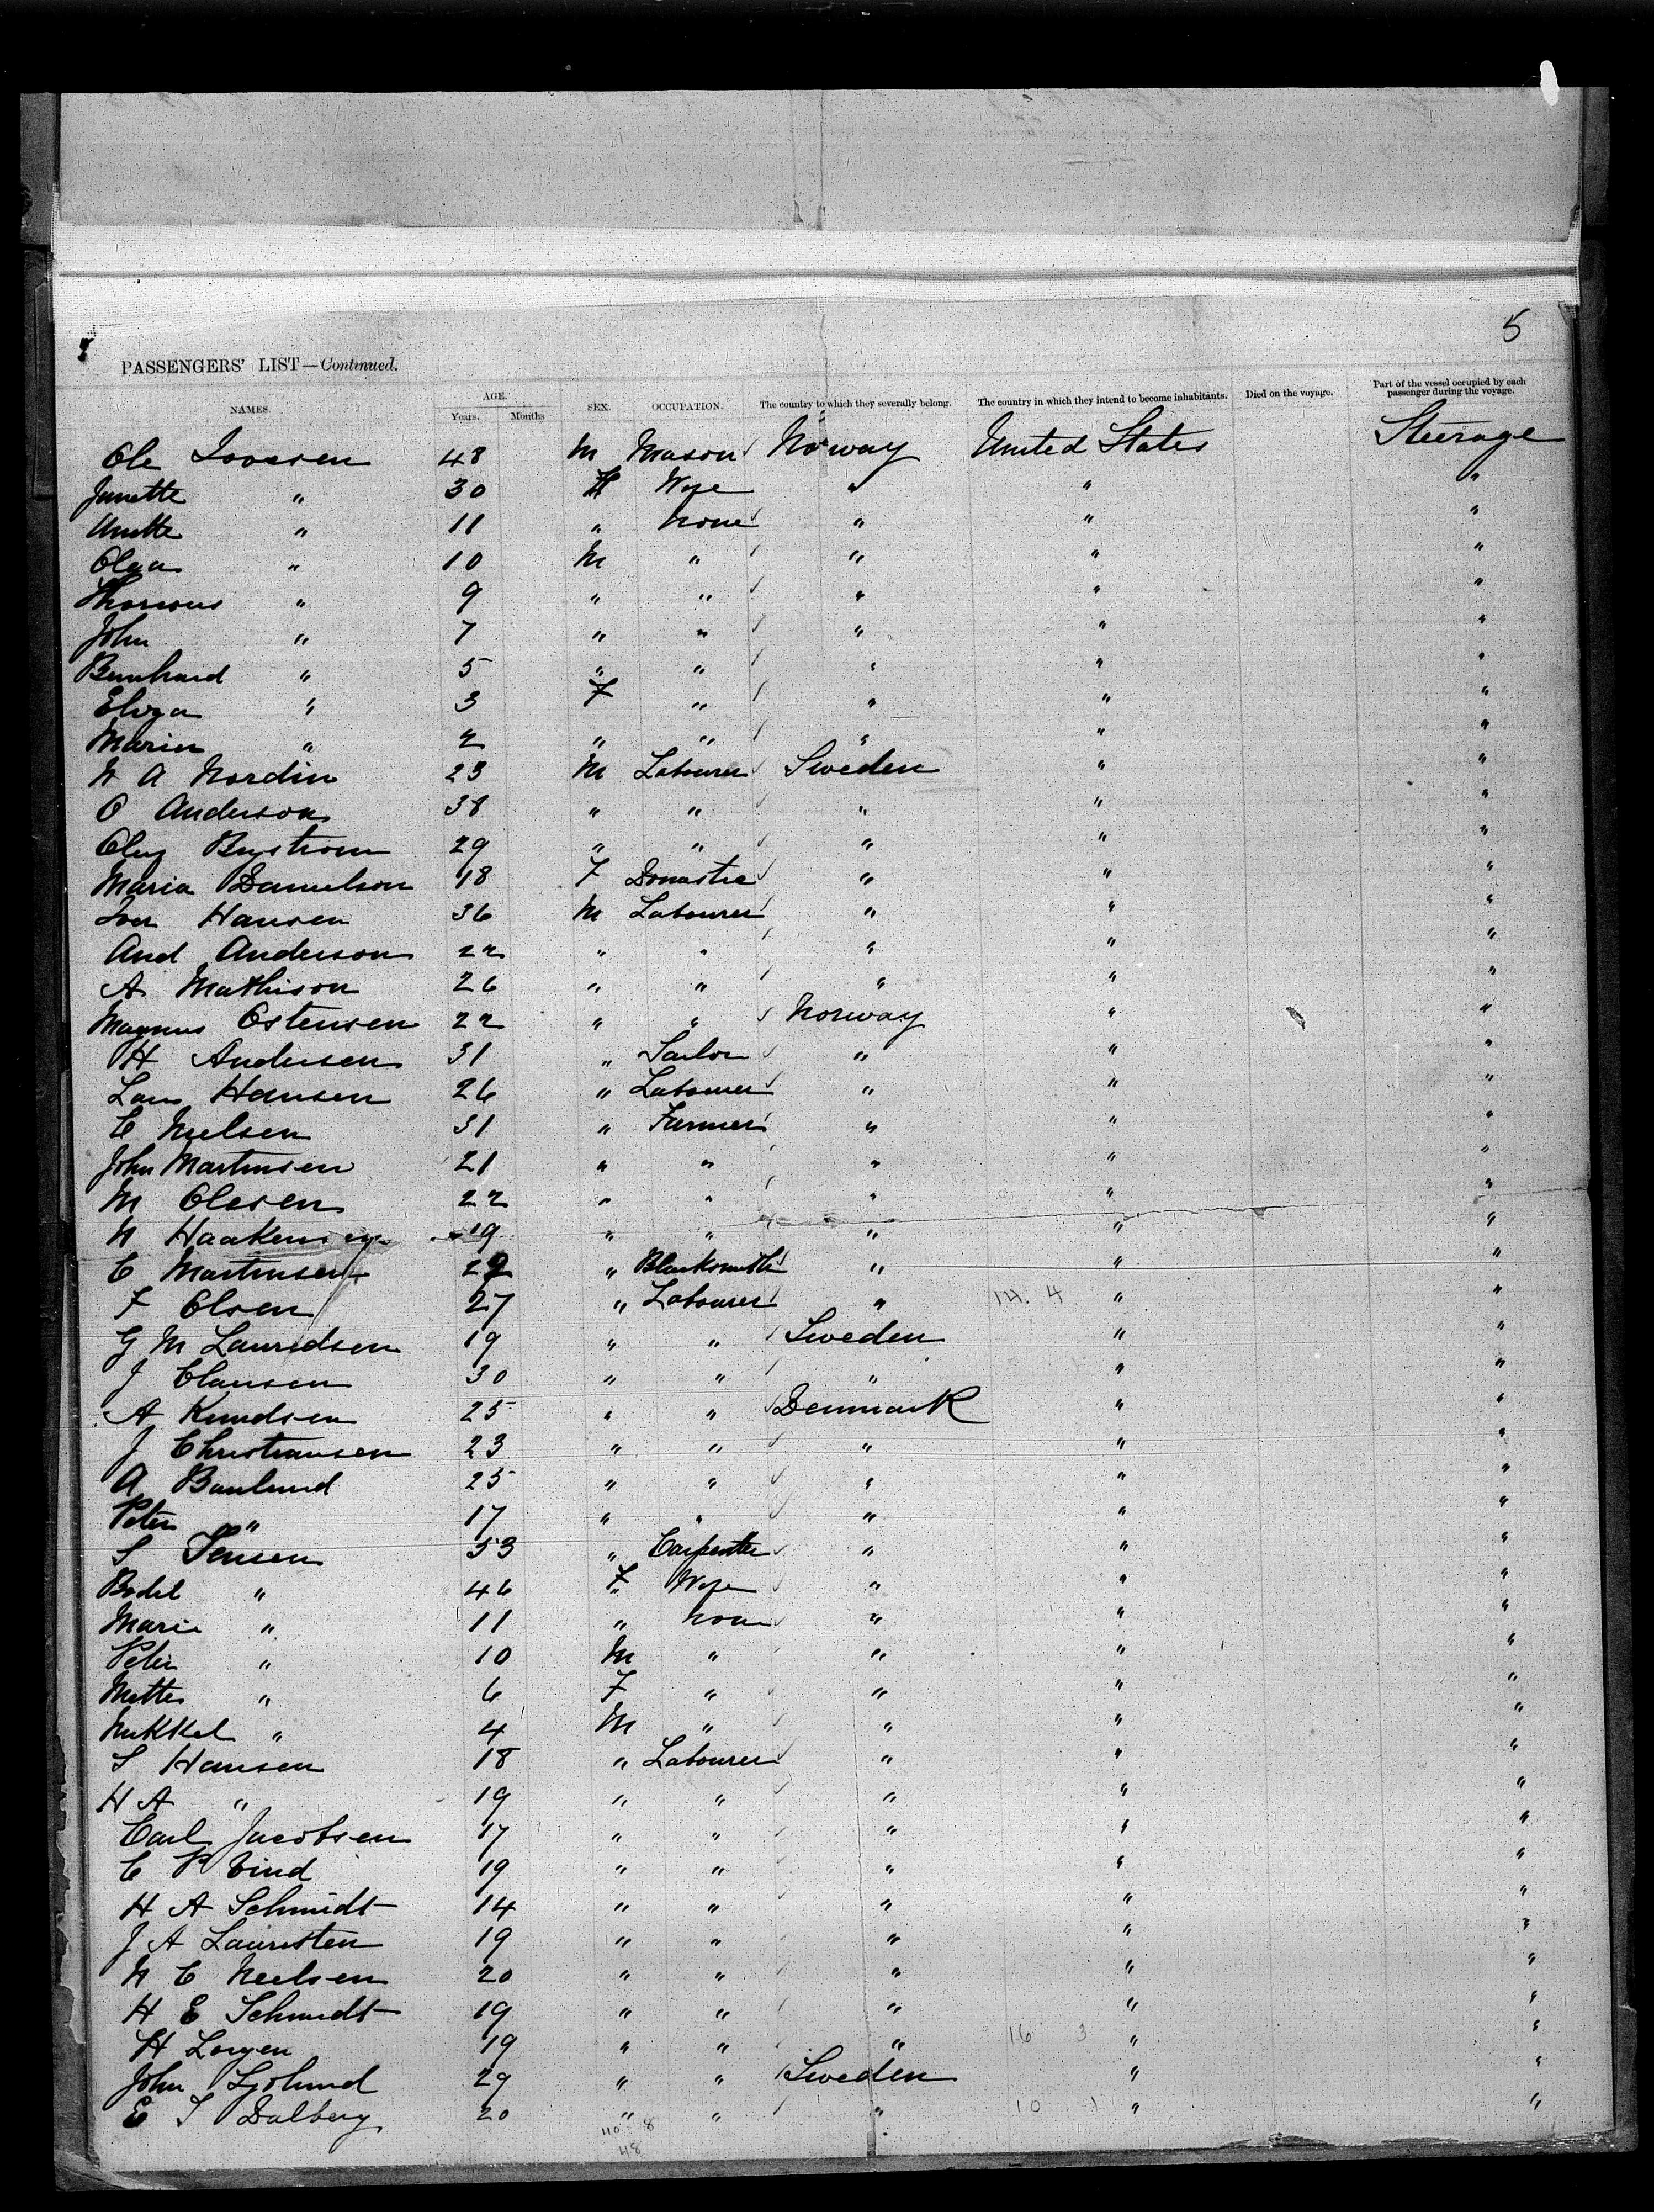 5
PASSENGERS' LIST—Continued.
NAMES. AGE. Years. Months SEX. OCCUPATION. The country to which they severally belong. The country in which they intend to become inhabitants. Died on the voyage. Part of the vessel occupied by each passenger during the voyage.
Ole 48 M Mason Norway United States Steerage
Janette " 30 F Wife " " "
Anette " 11 " None " " "
Olga " 10 M " " " "
" 9 " " " " "
John " 7 " " " " "
Bernhard " 5 " " " " "
" 3 F " " " "
Marin " 2 " " " " "
N A Nordin 23 M Labourer Sweden " "
O Anderson 38 " " " " "
Oluf Bystrom 29 " " " " "
Maria Danielson 18 F Domestic " " "
Iver Hansen 36 M Labourer " " "
And Anderson 22 " " " " "
A Mathison 26 " " " " "
Magnus Ostensen 22 " " Norway " "
H Andersen 31 " " " "
Lars Hansen 26 " Labourer " " "
C Nielsen 31 " Farmer " " "
John Martinsen 21 " " " " "
M Olesen 22 " " " " "
N Haakensen 19 " " " " "
C Martinsen " Blacksmith " " "
F Olsen 27 " Labourer " 14. 4 " "
G M Lauridsen 19 " " Sweden " "
J Clausen 30 " " " " "
A Knudsen 25 " " Denmark " "
J Christiansen 23 " " " " "
A Baulund 25 " " " " "
Peter " 17 " " " " "
S Jensen 53 " Carpenter " " "
Bodil " 46 F Wife " " "
Marie " 11 " Non " " "
Peter " 10 M " " " "
Mette " 6 F " " " "
Mikkel " 4 M " " " "
S Hansen 18 " Labourer " " "
H A " 19 " " " " "
Carl Jacobsen 17 " " " " "
C P Vind 19 " " " " "
H A Schmidt 14 " " " " "
J A Lauristen 19 " " " " "
N C Nielsen 20 " " " " "
H E Schmidt 19 " " " " "
H 19 " " " 16 3 " "
John Sjolund 29 " " Sweden " "
E S Dalberg 20 " " " 10 1 " "
40 8
48